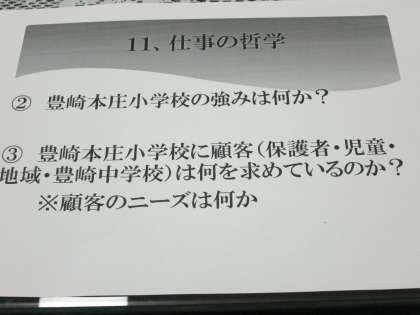 11、仕事の哲学
② 豊崎本庄小学校の強みは何か?
③ 豊崎本庄小学校に顧客(保護者・児童・
地域・豊崎中学校)は何を求めているのか?
※顧客のニーズは何か